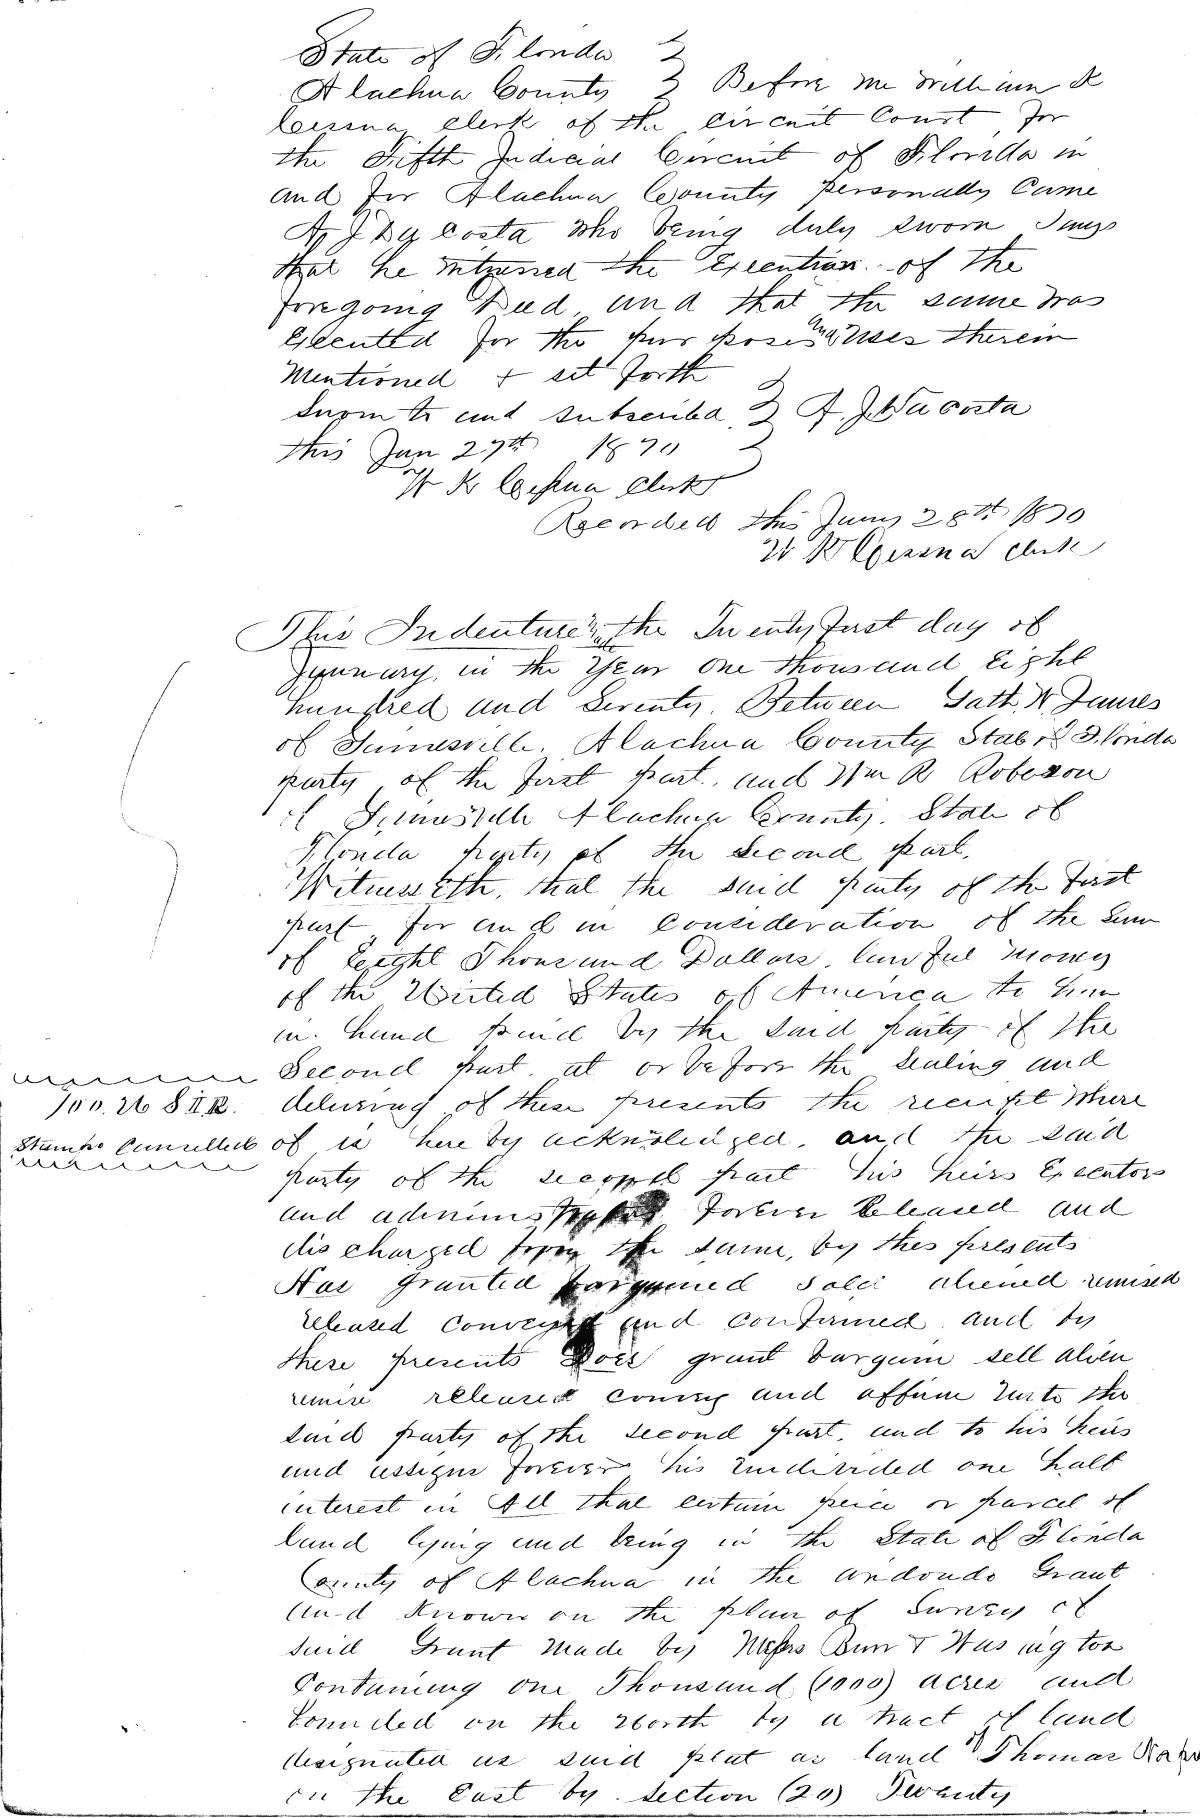 State of Florida }
Alachua County } Before me William K
Cessna clerk of the circuit Court for
the Fifth Judicial Circuit of Florida in
and for Alachua County personally Came
A. J DaCosta who being duly sworn Says
that he witnessed the Execution of the
foregoing Deed and that the same was
Executed for the pur poses and Uses therein
Mentioned + set forth
Sworn to and subscribed } A. J. DaCosta
this Jan 27th 1870
W K Cessna Clerk
Recorded this Jany 28th 1870
W K Cessna clerk
This Indenture made the Twenty first day of
January, in the Year One thousand Eight
hundred and Seventy. Between Gath. W James
of Jamesville, Alachua County State of Florida
party of the first part, and Wm R Roberson
of Jamesville Alachua County. State of
Florida party of the second part.
Witnesseth, that the said party of the first
part for and in Consideration of the Sum
of Eight Thousand Dollars, lawful money
of the United States of America to him
in hand paid by the said party of the
Second part at or before the sealing and
delivering of these presents the receipt where
of is here by acknoledged, and the said
party of the second part his heirs Executors
and administrators forever Released and
dis charged from the same, by thes presents
Has granted bargained sold aliened remised
released conveyed and confirmed and by
these presents Does grant bargain sell alien
remise released convey and affirm unto the
said party of the second part, and to his heirs
and assigns forever his undivided one half
interest in All that certain peice or parcel of
land lying and being in the State of Florida
County of Alachua in the Aridondo Grant
and Known on the plan of Survey of
said Grant made by Messrs Burr & Wasington
Containing one Thousand (1000) acres and
bounded on the North by a tract of land
designated us said plat as land of Thomas
on the East by section (20) Twenty
Stamps Cancelled